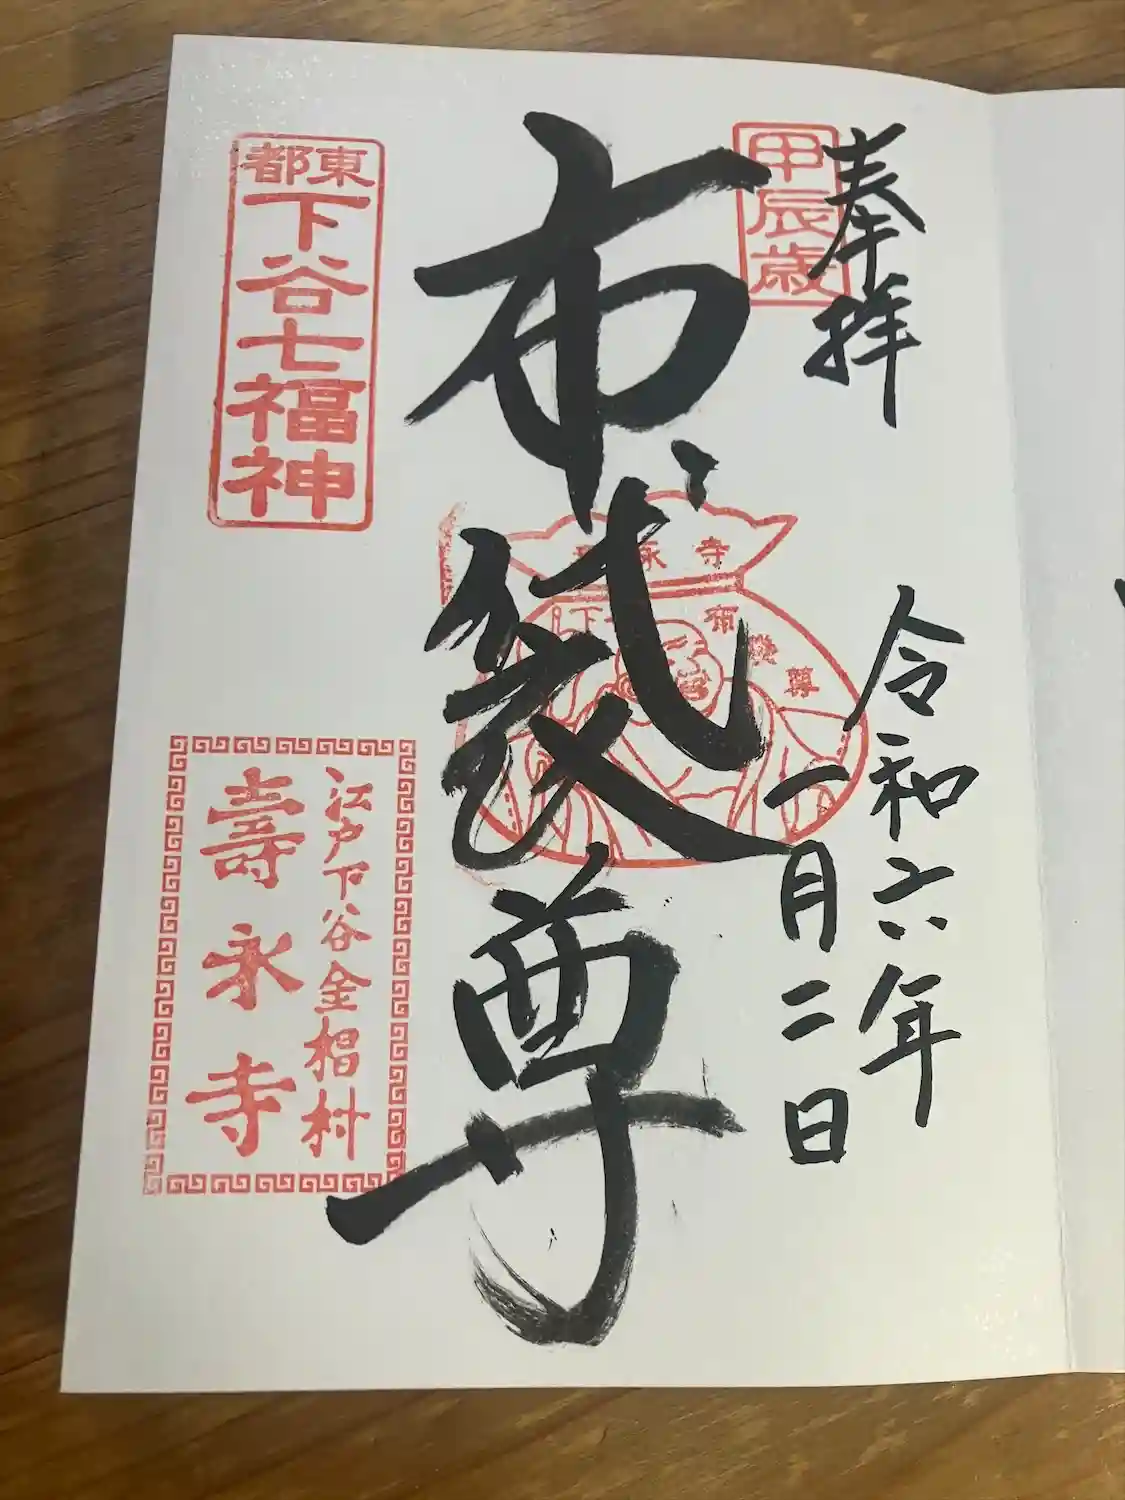 奉拝
甲辰歳
令和六年
一月二日
布袋尊
寺
布袋尊
東都
下谷七福神
江戸下谷金椙村
壽永寺